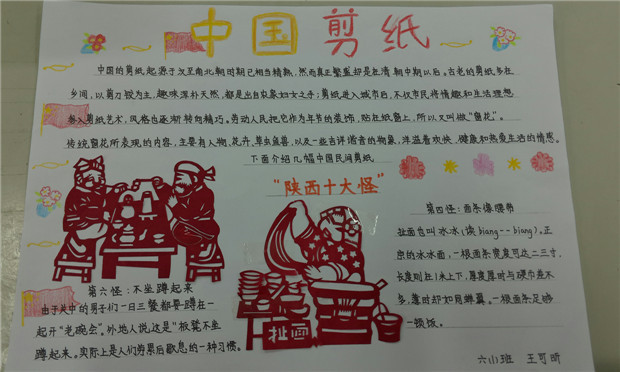 中国剪纸
中国的剪纸起源于汉至南北朝时期已相当精熟,然而真正繁盛却是在清朝中期以后。古老的剪纸多在
乡间,以剪刀铰为主,趣味浑朴天然,都是出自农家妇女之手;剪纸进入城市后,不仅市民将情趣和生活理想
融入剪纸艺术,风格也逐渐转向精巧。劳动人民把它作为年节的装饰,贴在纸窗上,所以又叫做“窗花”。
传统窗花所表现的内容,主要有人物,花卉,草虫鱼兽,以及一些吉祥谐音的物象,洋溢着欢快,健康和热爱生活的情感。
下面介绍几幅中国民间剪纸
“陕西十大怪”
第四怪:面条像腰带
扯面也叫冰冰(读biang--biang)。正
宗的冰冰面,一根面条宽度可达二三寸,
长度则在1米上下,厚度厚时与硬币差不
多,薄时却如同蝉翼。一根面条足够
一顿饭。
第六怪:不坐蹲起来
由于关中的男子们一日三餐都要蹲在一
起开“老碗会”。外地人说这是“板凳不坐
蹲起来。实际上是人们劳累后歇息的一种习惯。
扯面
六(1)班 王可昕